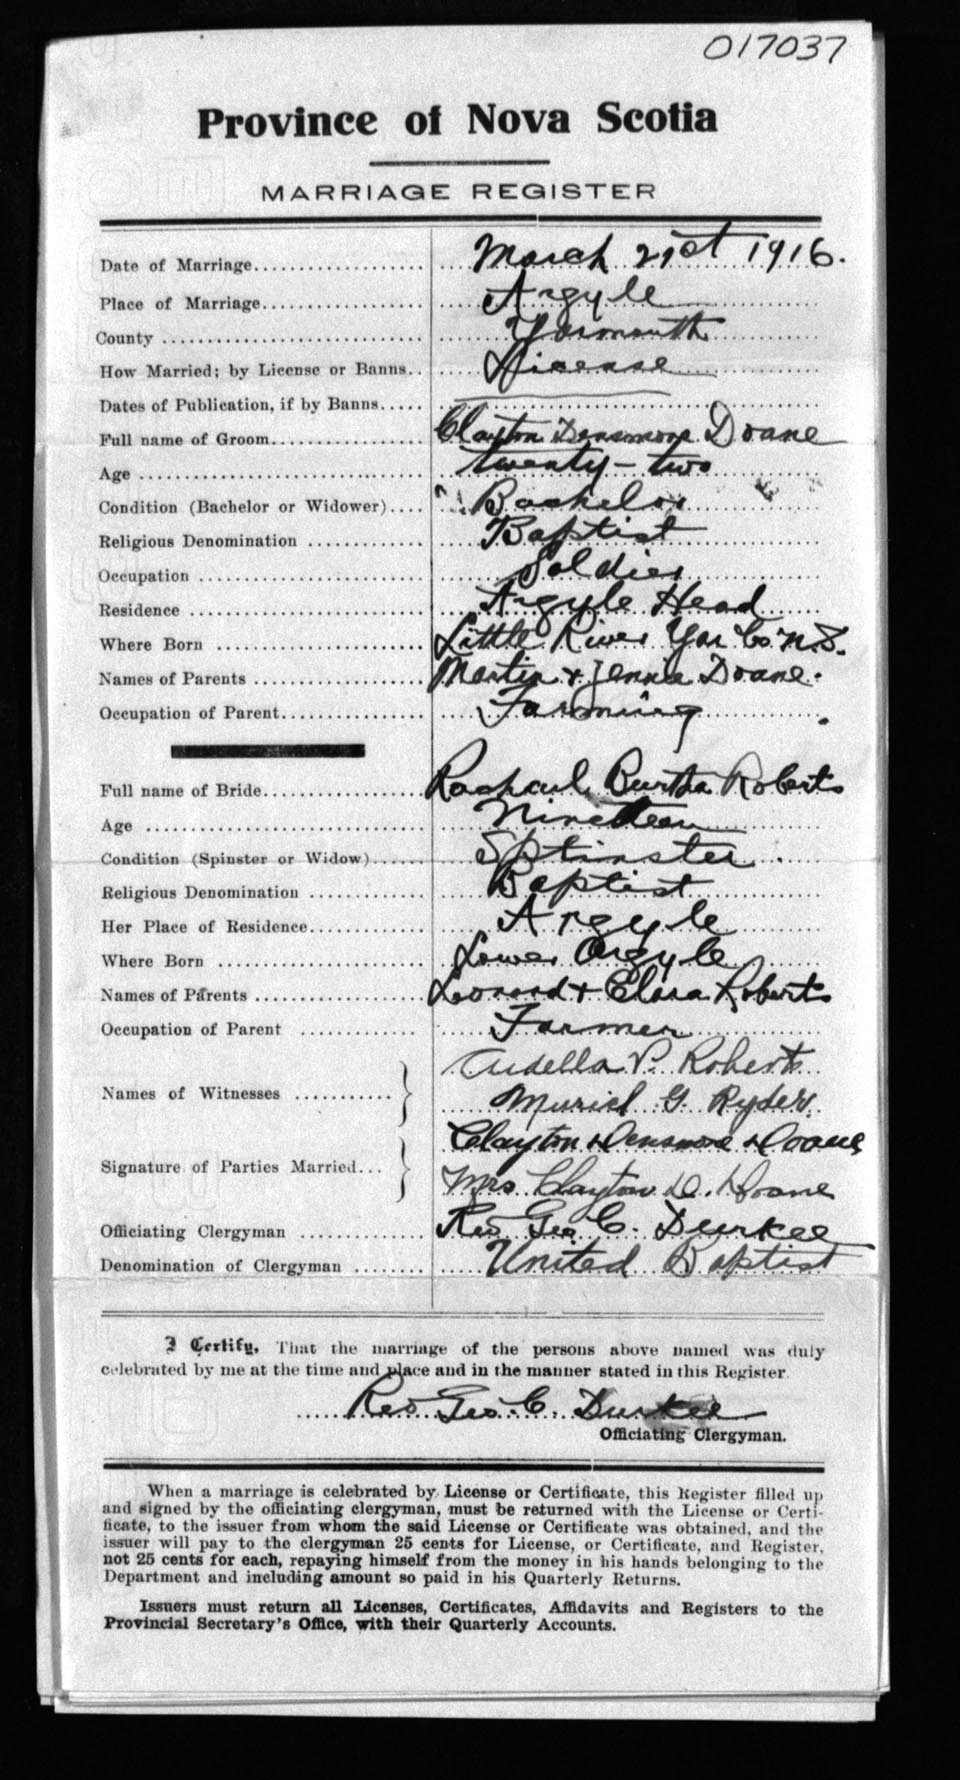 017037
Province of Nova Scotia
MARRIAGE REGISTER
Date of Marriage.................... March 21st 1916.
Place of Marriage................... Argyle
County ............................. Yarmouth
How Married; by License or Banns.. License
Dates of Publication, if by Banns.....
Full name of Groom.................. Clayton Densmore Doane
Age ................................ twenty-two
Condition (Bachelor or Widower).... Bachelor
Religious Denomination ............ Baptist
Occupation ......................... Soldier
Residence .......................... Argyle Head
Where Born ......................... Little River Yar Co. N.S.
Names of Parents ................... Martin & Jennie Doane.
Occupation of Parent................ Farming
Full name of Bride.................. Rachaul Burtha Roberts
Age ................................ Nineteen
Condition (Spinster or Widow)...... Sptinster
Religious Denomination ............ Baptist
Her Place of Residence............. Argyle
Where Born ......................... Lower Argyle
Names of Parents ................... Leonard & Clara Roberts
Occupation of Parent ............. Farmer
Ardella P. Roberts
Names of Witnesses ........... Muriel G. Ryder
Clayton Densmore Doane
Signature of Parties Married... Mrs Clayton D. Doane
Officiating Clergyman ............. Rev Geo C. Durkee
Denomination of Clergyman ........ United Baptist
I Certify, That the marriage of the persons above named was duly
celebrated by me at the time and place and in the manner stated in this Register
Rev Geo. C. Durkee
Officiating Clergyman.
When a marriage is celebrated by License or Certificate, this Register filled up
and signed by the officiating clergyman, must be returned with the License or Certi-
ficate, to the issuer from whom the said License or Certificate was obtained, and the
issuer will pay to the clergyman 25 cents for License, or Certificate, and Register,
not 25 cents for each, repaying himself from the money in his hands belonging to the
Department and including amount so paid in his Quarterly Returns.
Issuers must return all Licenses, Certificates, Affidavits and Registers to the
Provincial Secretary's Office, with their Quarterly Accounts.